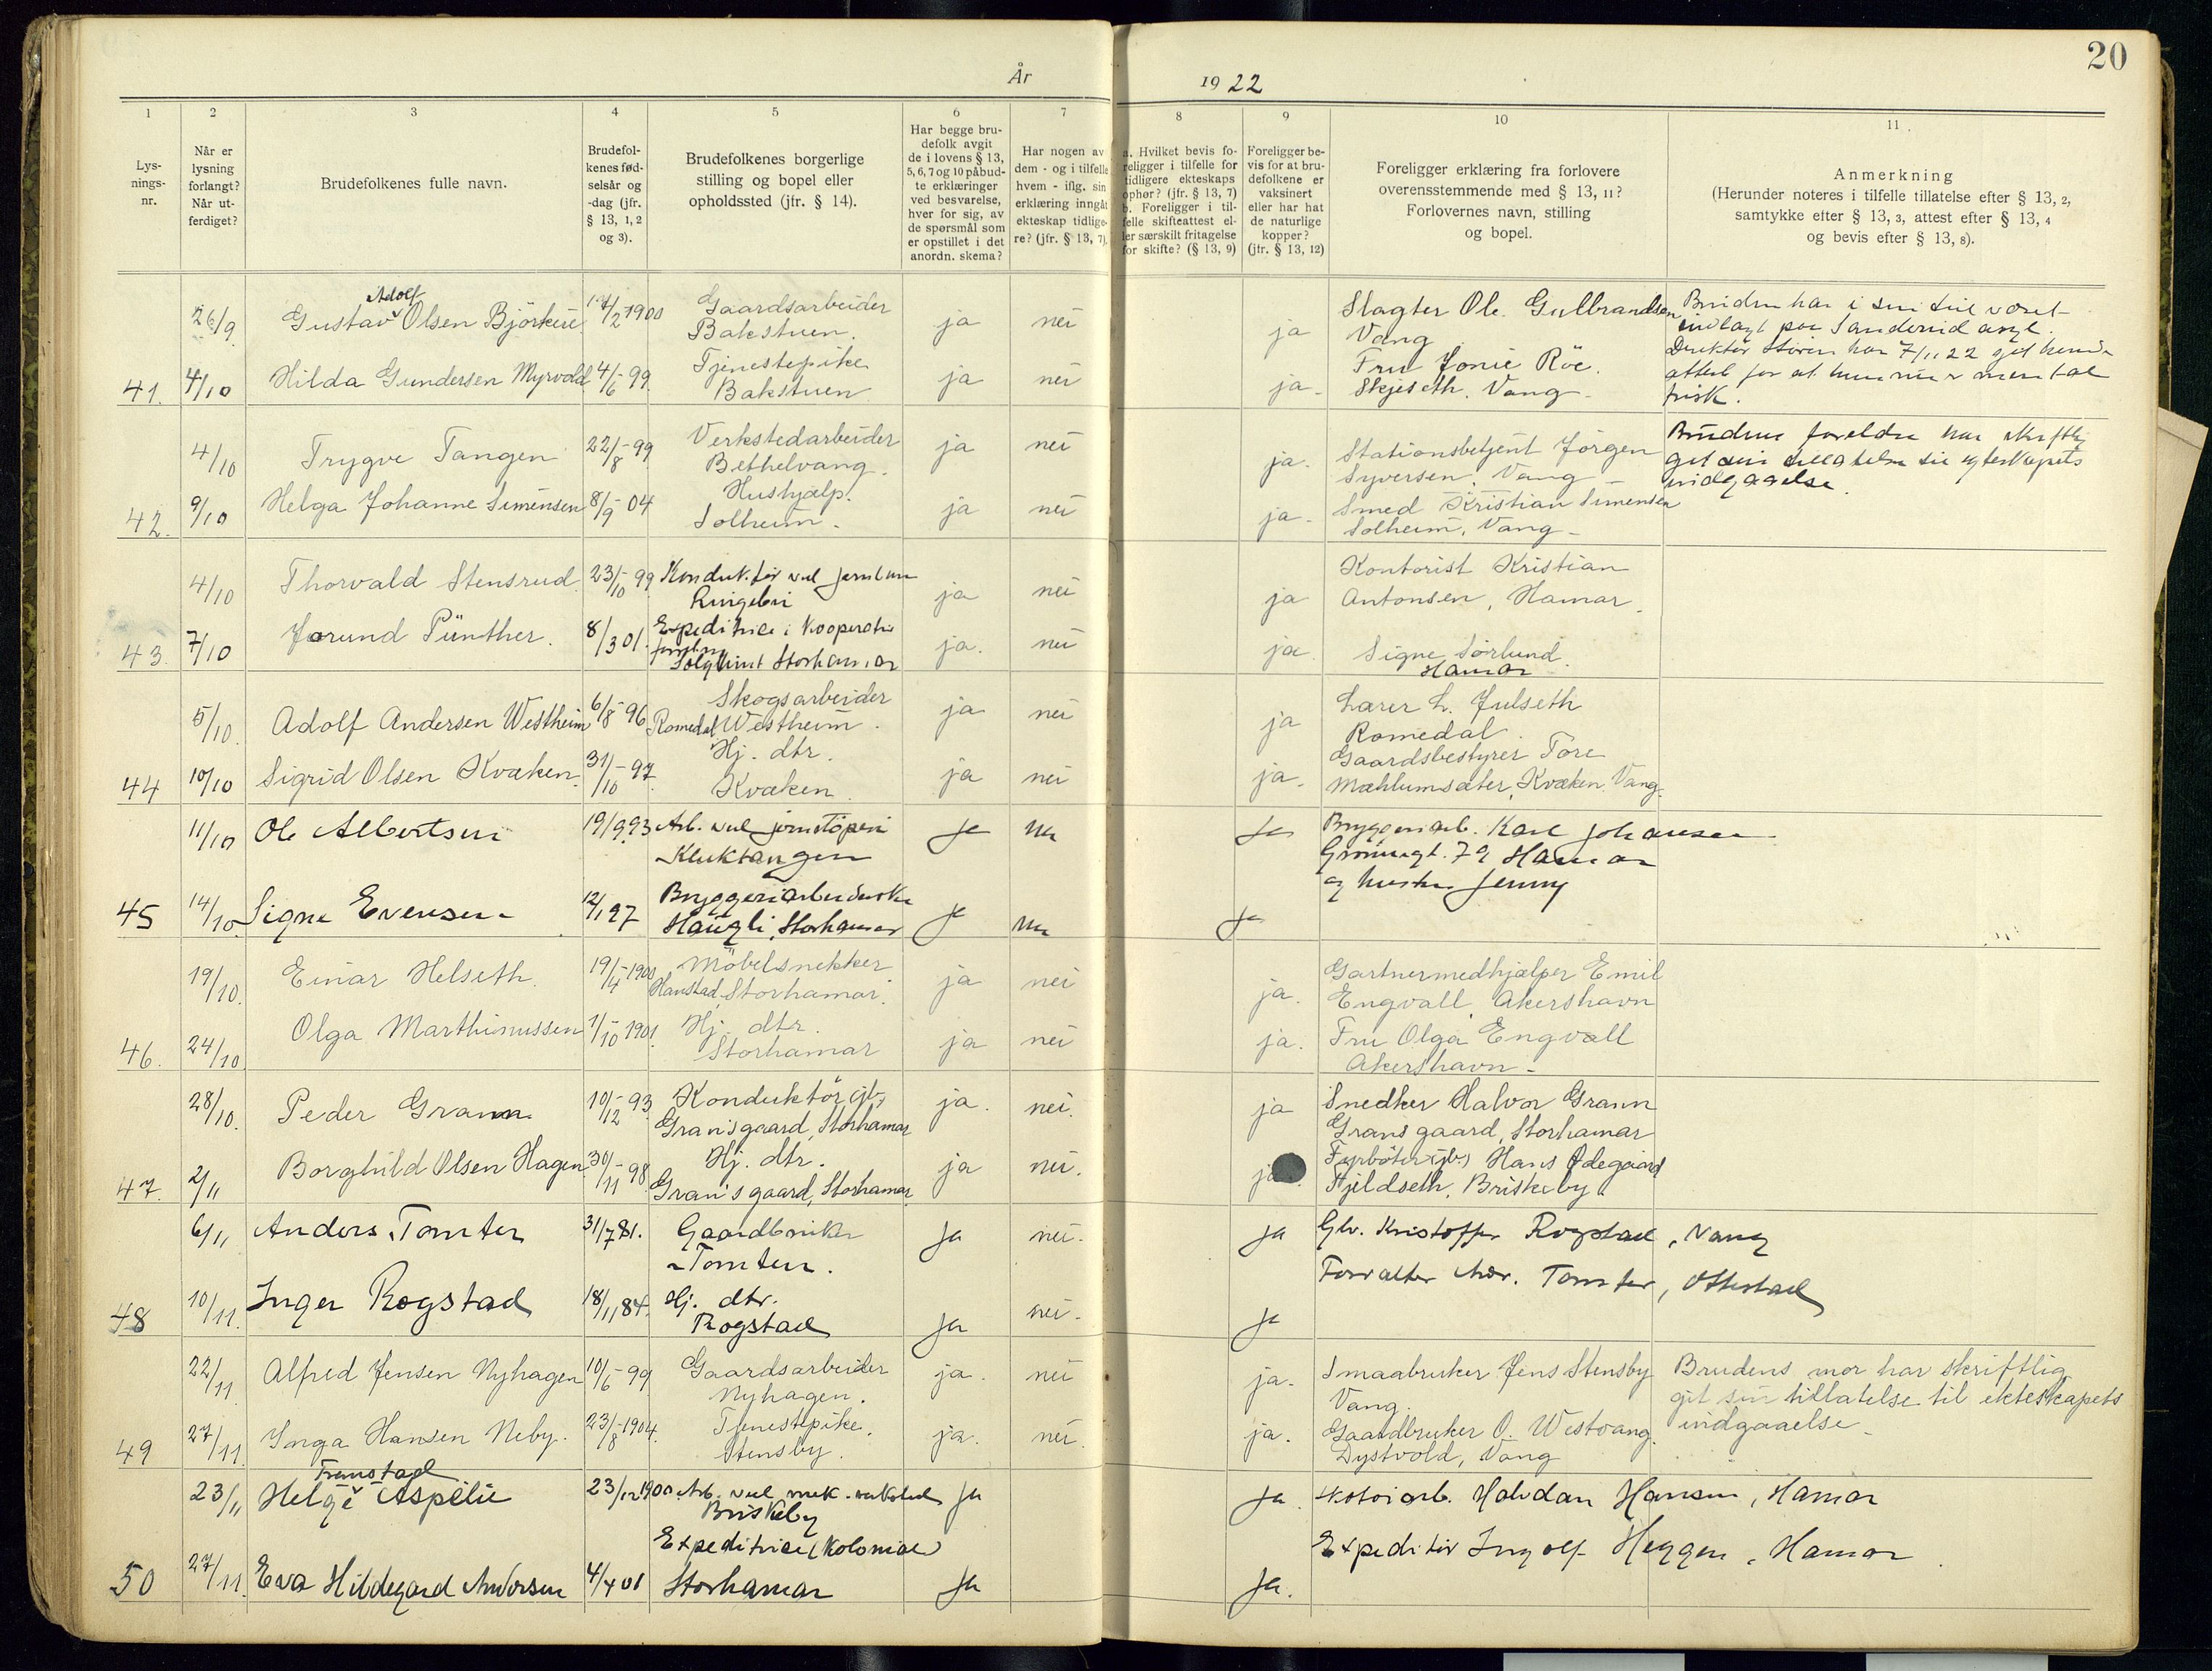 20
År 1922
1
2
3
4
5
6
7
8
9
10
11
Lys-
nings-
nr.
Når er
lysning
forlangt?
Når ut-
ferdiget?
Brudefolkenes fulle navn.
Brudefol-
kenes fød-
selsår og
-dag (jfr.
§ 13, 1, 2
og 3).
Brudefolkenes borgerlige
stilling og bopel eller
opholdssted (jfr. § 14).
Har begge bru-
defolk avgit
de i lovens § 13,
5, 6, 7 og 10 påbud-
te erklæringer
ved besvarelse,
hver for sig, av
de spørsmål som
er opstillet i det
anordn. skema?
Har nogen av
dem - og i tilfelle
hvem - iflg. sin
erklæring inngåt
ekteskap tidlige-
re? (jfr. § 13, 7).
a. Hvilket bevis fo-
religger i tilfelle for
tidligere ekteskaps
ophør? (jfr. § 13, 7)
b. Foreligger i til-
felle skifteattest el-
ler særskilt fritagelse
for skifte? (§ 13, 9)
Foreligger be-
vis for at bru-
defolkene er
vaksinert
eller har hat
de naturlige
kopper?
(jfr. § 13, 12)
Foreligger erklæring fra forlovere
overensstemmende med § 13, 11?
Forlovernes navn, stilling
og bopel.
Anmerkning
(Herunder noteres i tilfelle tillatelse efter § 13, 2,
samtykke efter § 13, 3, attest efter § 13, 4
og bevis efter § 13, 8).
26/9 Gustav Adolf Olsen Björkeie /2 1900 Gaardsarbeider
Bakstuen. ja nei ja Slagter Ole Gulbrandsen
Vang
41. 4/10 Hilda Gundersen Myrvold 4/6-99. Tjenestepike
Bakstuen ja nei ja- Fru Jonie Röe.
Skjeseth. Vang-
Bruden har i sin tid været
indlagt paa Sanderud asyl.
Direktör har 7/11 22 git hende
attest for at hun nu er mental
frisk.
4/10 Trygve Tangen 22/8-99 Verkstedarbeider
Bethelvang. ja nei ja. Stationsbetjent Jörgen
Syversen. Vang
42. 9/10 Helga Johanne Simensen 8/9-04 Hushjælp.
Solheim. ja nei ja- Smed Kristian Simensen
Solheim, Vang-
Brudens foreldre har skriftlig
git sin tillatelse til egteskapets
indgaaelse.
4/10 Thorvald Stensrud 23/10-99 Konduktör ved jernbanen
Ringebu ja nei ja Kontorist Kristian
Antonsen, Hamar.
43. 7/10 Jorund Pünther. 8/3 01. Expeditrice i Kooperativ
Solghimt Storhamar ja. nei ja Signe Sörlund.
Hamar
5/10. Adolf Andersen Westheim 6/8-96 Skogsarbeider
Romedal Westheim. ja nei ja Lærer L. Julseth
Romedal.
44 10/10 Sigrid Olsen Kvæken. 31/10-97. Hj. dtr.
Kvæken. ja nei ja- Gaardsbestyrer Tore
Mæhlumsæter, Kvæken, Vang-
11/10 Ole Albertsen 19/9.93 Arb. ved jernstöperi
Kluktangen ja nei ja Bryggeriarb. Karl Johansen
Grönnegt. 79 Hamar
og hustru Jenny
45 14/10 Signe Evensen 12/1 97 Bryggeriarbeiderske
Haugli, Storhamar ja nei ja
19/10. Einar Helseth. 19/4-1900 Möbelsnekker
Hanstad, Storhamar. ja nei ja. Gartnermedhjælper Emil
Engvall, Akershavn
46. 24/10. Olga Marthinussen 1/10-1901. Hj. dtr.
Storhamar ja nei ja. Fru Olga Engvall
Akershavn-
28/10. Peder Grann 10/12-93. Konduktör (jb.)
Gran's gaard, Storhamar ja. nei. ja Snedker Halvor Grann
Gran's gaard, Storhamar
47. 2/11 Borghild Olsen Hagen. 30/11-98. Hj. dtr.
Gran's gaard, Storhamar. ja nei. ja. Fyrböter (jb.) Hans Ödegaard
Fjeldseth, Briskeby.
6/11 Anders Tomter 31/7 81. Gaardbruker
Tomten. ja nei. ja Gbr. Kristoffer Rogstad, Vang
48 10/11. Inger Rogstad 18/11 84. Hj. dtr.
Rogstad ja nei. ja Forvalter Tomter, Ottestad
22/11. Alfred Jensen Nyhagen 10/6-99 Gaardsarbeider
Nyhagen. ja. nei ja. Smaabruker Jens Stensby
Vang.
49 27/11. Inga Hansen Neby. 23/8-1904. Tjenestepike.
Stensby. ja. nei. ja. Gaardbruker O. Westvang.
Dystvold, Vang
Brudens mor har skriftlig
git sin tillatelse til ekteskapets
indgaaelse.
23/11 Helge Transtad Aspelie 23/12 1900 Arb. ved mek. verksted
Briskeby ja ja. Skotöiarb. Halvdan Hansen, Hamar
50 27/11. Eva Hildegard Andersen 4/4 01 Expeditrice (Kolonial)
Storhamar ja ja. Expeditör Ingolf Heggen, Hamar